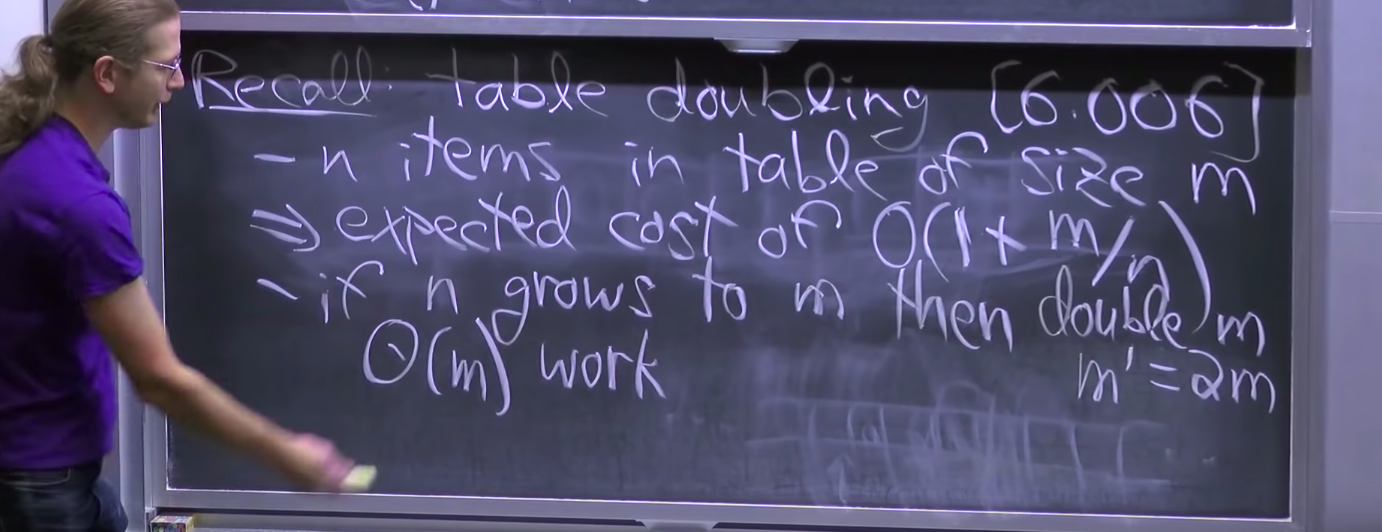 Recall: table doubling [6.006]
- n items in table of size m
⇒ expected cost of O(1+ m/n)
- if n grows to m then double m
Θ(m) work m' = 2m